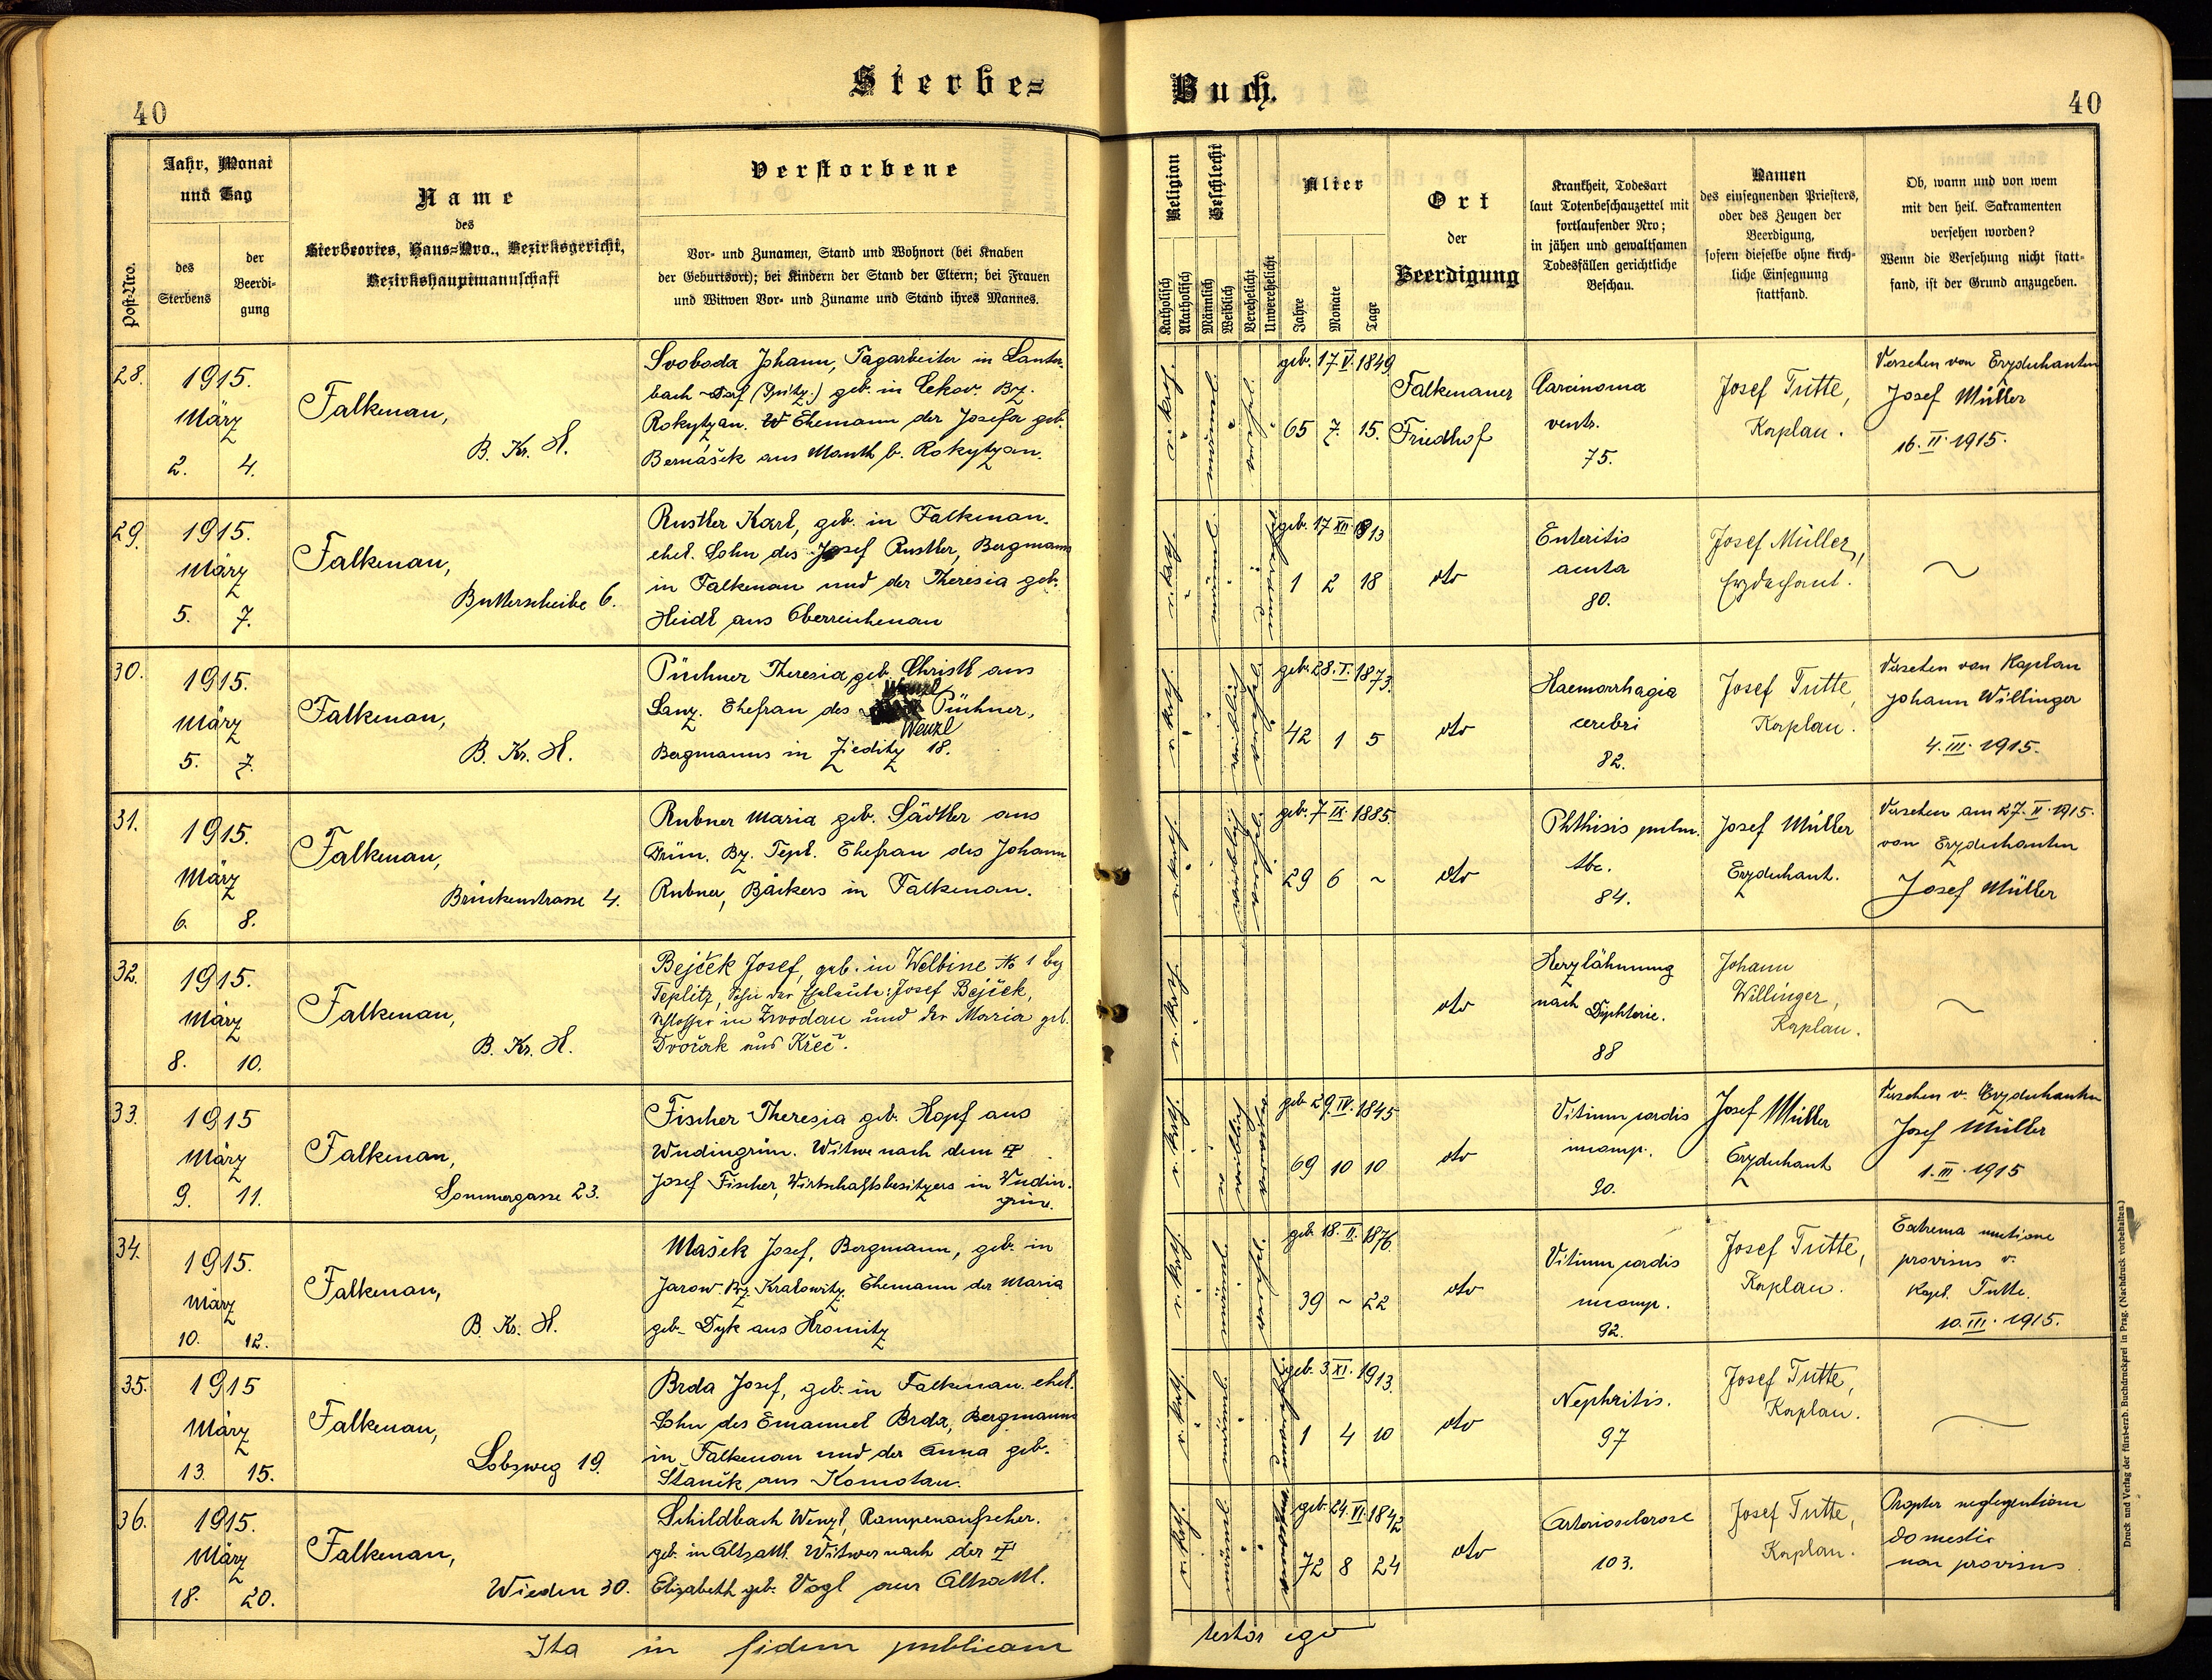 Sterbe-
Buch.
40
40
Post-Nro.
Jahr, Monat
und Tag
des
Sterbens
der
Beerdi-
gung
Name
des
Sterbeortes, Haus-Nro., Bezirksgericht,
Bezirkshauptmannschaft
Verstorbene
Vor- und Zunamen, Stand und Wohnort (bei Knaben
der Geburtsort); bei Kindern der Stand der Eltern; bei Frauen
und Witwen Vor- und Zuname und Stand ihres Mannes.
Religion
Katholisch
Akatholisch
Geschlecht
Männlich
Weiblich
Verehelicht
Unverehelicht
Alter
Jahre
Monate
Tage
Ort
der
Beerdigung
Krankheit, Todesart
laut Totenbeschauzettel mit
fortlaufender Nro;
in jähen und gewaltsamen
Todesfällen gerichtliche
Beschau.
Namen
des einsegnenden Priesters,
oder des Zeugen der
Beerdigung,
sofern dieselbe ohne kirch-
liche Einsegnung
stattfand.
Ob, wann und von wem
mit den heil. Sakramenten
versehen worden?
Wenn die Versehung nicht statt-
fand, ist der Grund anzugeben.
28.
1915.
März
2. 4.
Falkenau,
B. Kr. H.
Svoboda Johann, Tagarbeiter in
geb. in Bz.
Rokytzan. Ehemann der Josefa geb.
Bernášek aus Mauth b. Rokytzan.
r. kath.
männl.
vereh.
geb. 17 V. 1849
65 7. 15.
Falkenauer
Friedhof
Carcinoma
ventr.
75.
Josef Tutte,
Kaplan.
Versehen von Erzdechanten
Josef Müller
16. II. 1915.
29.
1915.
März
5. 7.
Falkenau,
Butterscheibe 6.
Rustler Karl, geb. in Falkenau.
ehel. Sohn des Josef Rustler, Bergmann
in Falkenau und der Theresia geb.
Heidl aus Oberreichenau
r. kath.
männl.
geb. 17 XII. 913
1 2 18
dto
Enteritis
acuta
80.
Josef Müller,
Erzdechant.
~
30.
1915.
März
5. 7.
Falkenau,
B. Kr. H.
Püchner Theresia geb. Christl aus
Lanz. Ehefrau des Wenzl Püchner,
Wenzl
Bergmanns in Zieditz 18.
r. kath.
weiblich
vereh.
geb. 28. I. 1873.
42 1 5
dto
Haemorrhagia
cerebri
82.
Josef Tutte,
Kaplan.
Versehen von Kaplan
Johann Willinger
4. III. 1915.
31.
1915.
März
6. 8.
Falkenau,
Brückenstrasse 4.
Rubner Maria geb. Sädtler aus
Grün. Bz. Tepl. Ehefrau des Johann
Rubner, Bäckers in Falkenau.
r. kath.
weiblich
vereh.
geb. 7 IX. 1885.
29 6 ~
dto
Phthisis pulm.
tbc.
84.
Josef Müller
Erzdechant.
Versehen am 27. II. 1915.
von Erzdechanten
Josef Müller
32.
1915.
März
8. 10.
Falkenau,
B. Kr. H.
Bejček Josef, geb. in Welbine № 1 bez
Teplitz, Sohn der Eheleute: Josef Bejček,
Schlosser in Zwodau und der Maria geb.
Dvořak aus Křeč.
r. kath.
dto
Herzlähmung
nach Diphterie.
88
Johann
Willinger,
Kaplan.
~
33.
1915
März
9. 11.
Falkenau,
Sommergasse 23.
Fischer Theresia geb. Hopf aus
Wudingrün. Witwe nach dem †
Josef Fischer, Wirtschaftsbesitzers in Wudin-
grün.
r. kath.
weiblich
geb 29. IV. 1845
69 10 10
dto
Vitium cordis
incomp.
90.
Josef Müller
Erzdechant
Versehen v. Erzdechanten
Josef Müller
1. III. 1915
34.
1915.
März
10. 12.
Falkenau,
B. Kr. H.
Mašek Josef, Bergmann, geb. in
Jarow Bz. Kralowitz. Ehemann der Maria
geb. Dyk aus Hromitz
r. kath.
männl.
vereh.
geb. 18. II. 1876.
39 ~ 22
dto
Vitium cordis
incomp.
92.
Josef Tutte,
Kaplan.
Extrema unctione
provisus v.
Kapl. Tutte.
10. III. 1915.
35.
1915
März
13. 15.
Falkenau,
Lobsweg 19.
Brda Josef, geb. in Falkenau. ehel.
Sohn des Emanuel Brda, Bergmanns
in Falkenau und der Anna geb.
Staněk aus Komotau.
r. kath.
männl.
geb. 3. XI. 1913.
1 4 10
dto
Nephritis.
97
Josef Tutte,
Kaplan.
~
36.
1915.
März
18. 20.
Falkenau,
Wieden 30.
Schildbach Wenzl, Rampenaufseher.
geb. in Altsattl. Witwer nach der †
Elisabeth geb. Vogl aus Altsattl.
r. kath.
männl.
geb. 24. VI. 1842
72 8 24
dto
Arteriosclerose
103.
Josef Tutte,
Kaplan.
Propter neglegentiam
domestic
non provisus
Ita in fidem publicam
testor ego
Druck und Verlag der fürst-erzb. Buchdruckerei in Prag. (Nachdruck vorbehalten.)